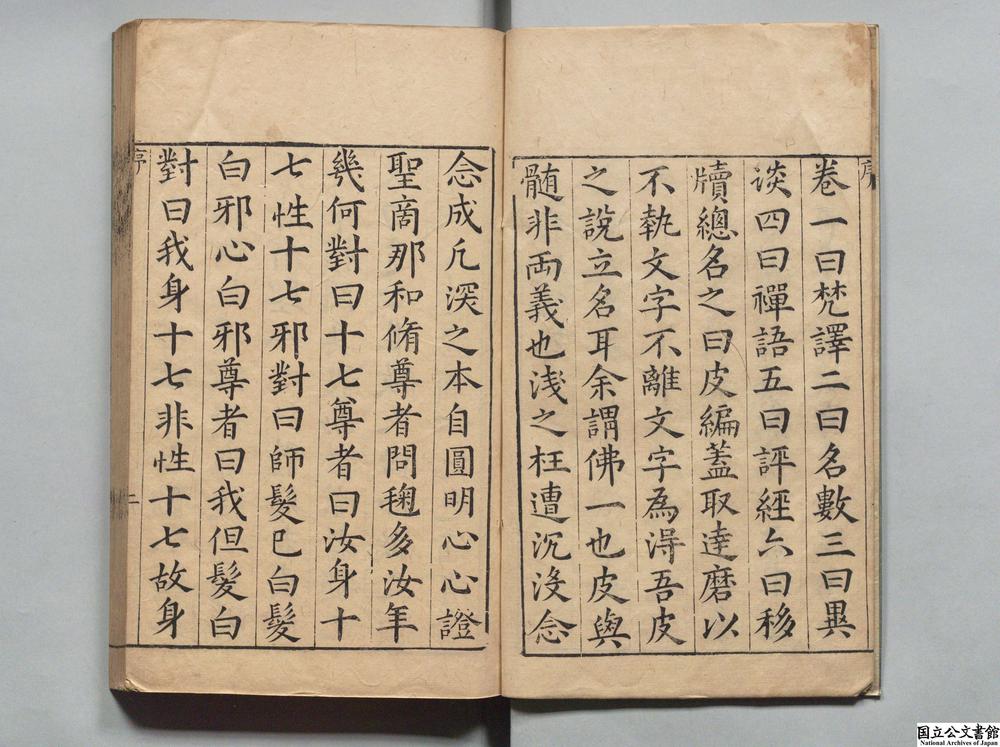 序
卷一曰梵譯二曰名數三曰異
談四曰禪語五曰評經六曰移
牘總名之曰皮編蓋取達磨以
不執文字不離文字為淂吾皮
之說立名耳余謂佛一也皮與
髄非両義也淺之枉遭沉没念
念成凡深之本自圓明心心證
聖啇那和脩尊者問毱多汝年
幾何對曰十七尊者曰汝身十
七性十七邪對曰師髮已白髮
白邪心白邪尊者曰我但髮白
對曰我身十七非性十七故身
序
二
国立公文書館
National Archives of Japan